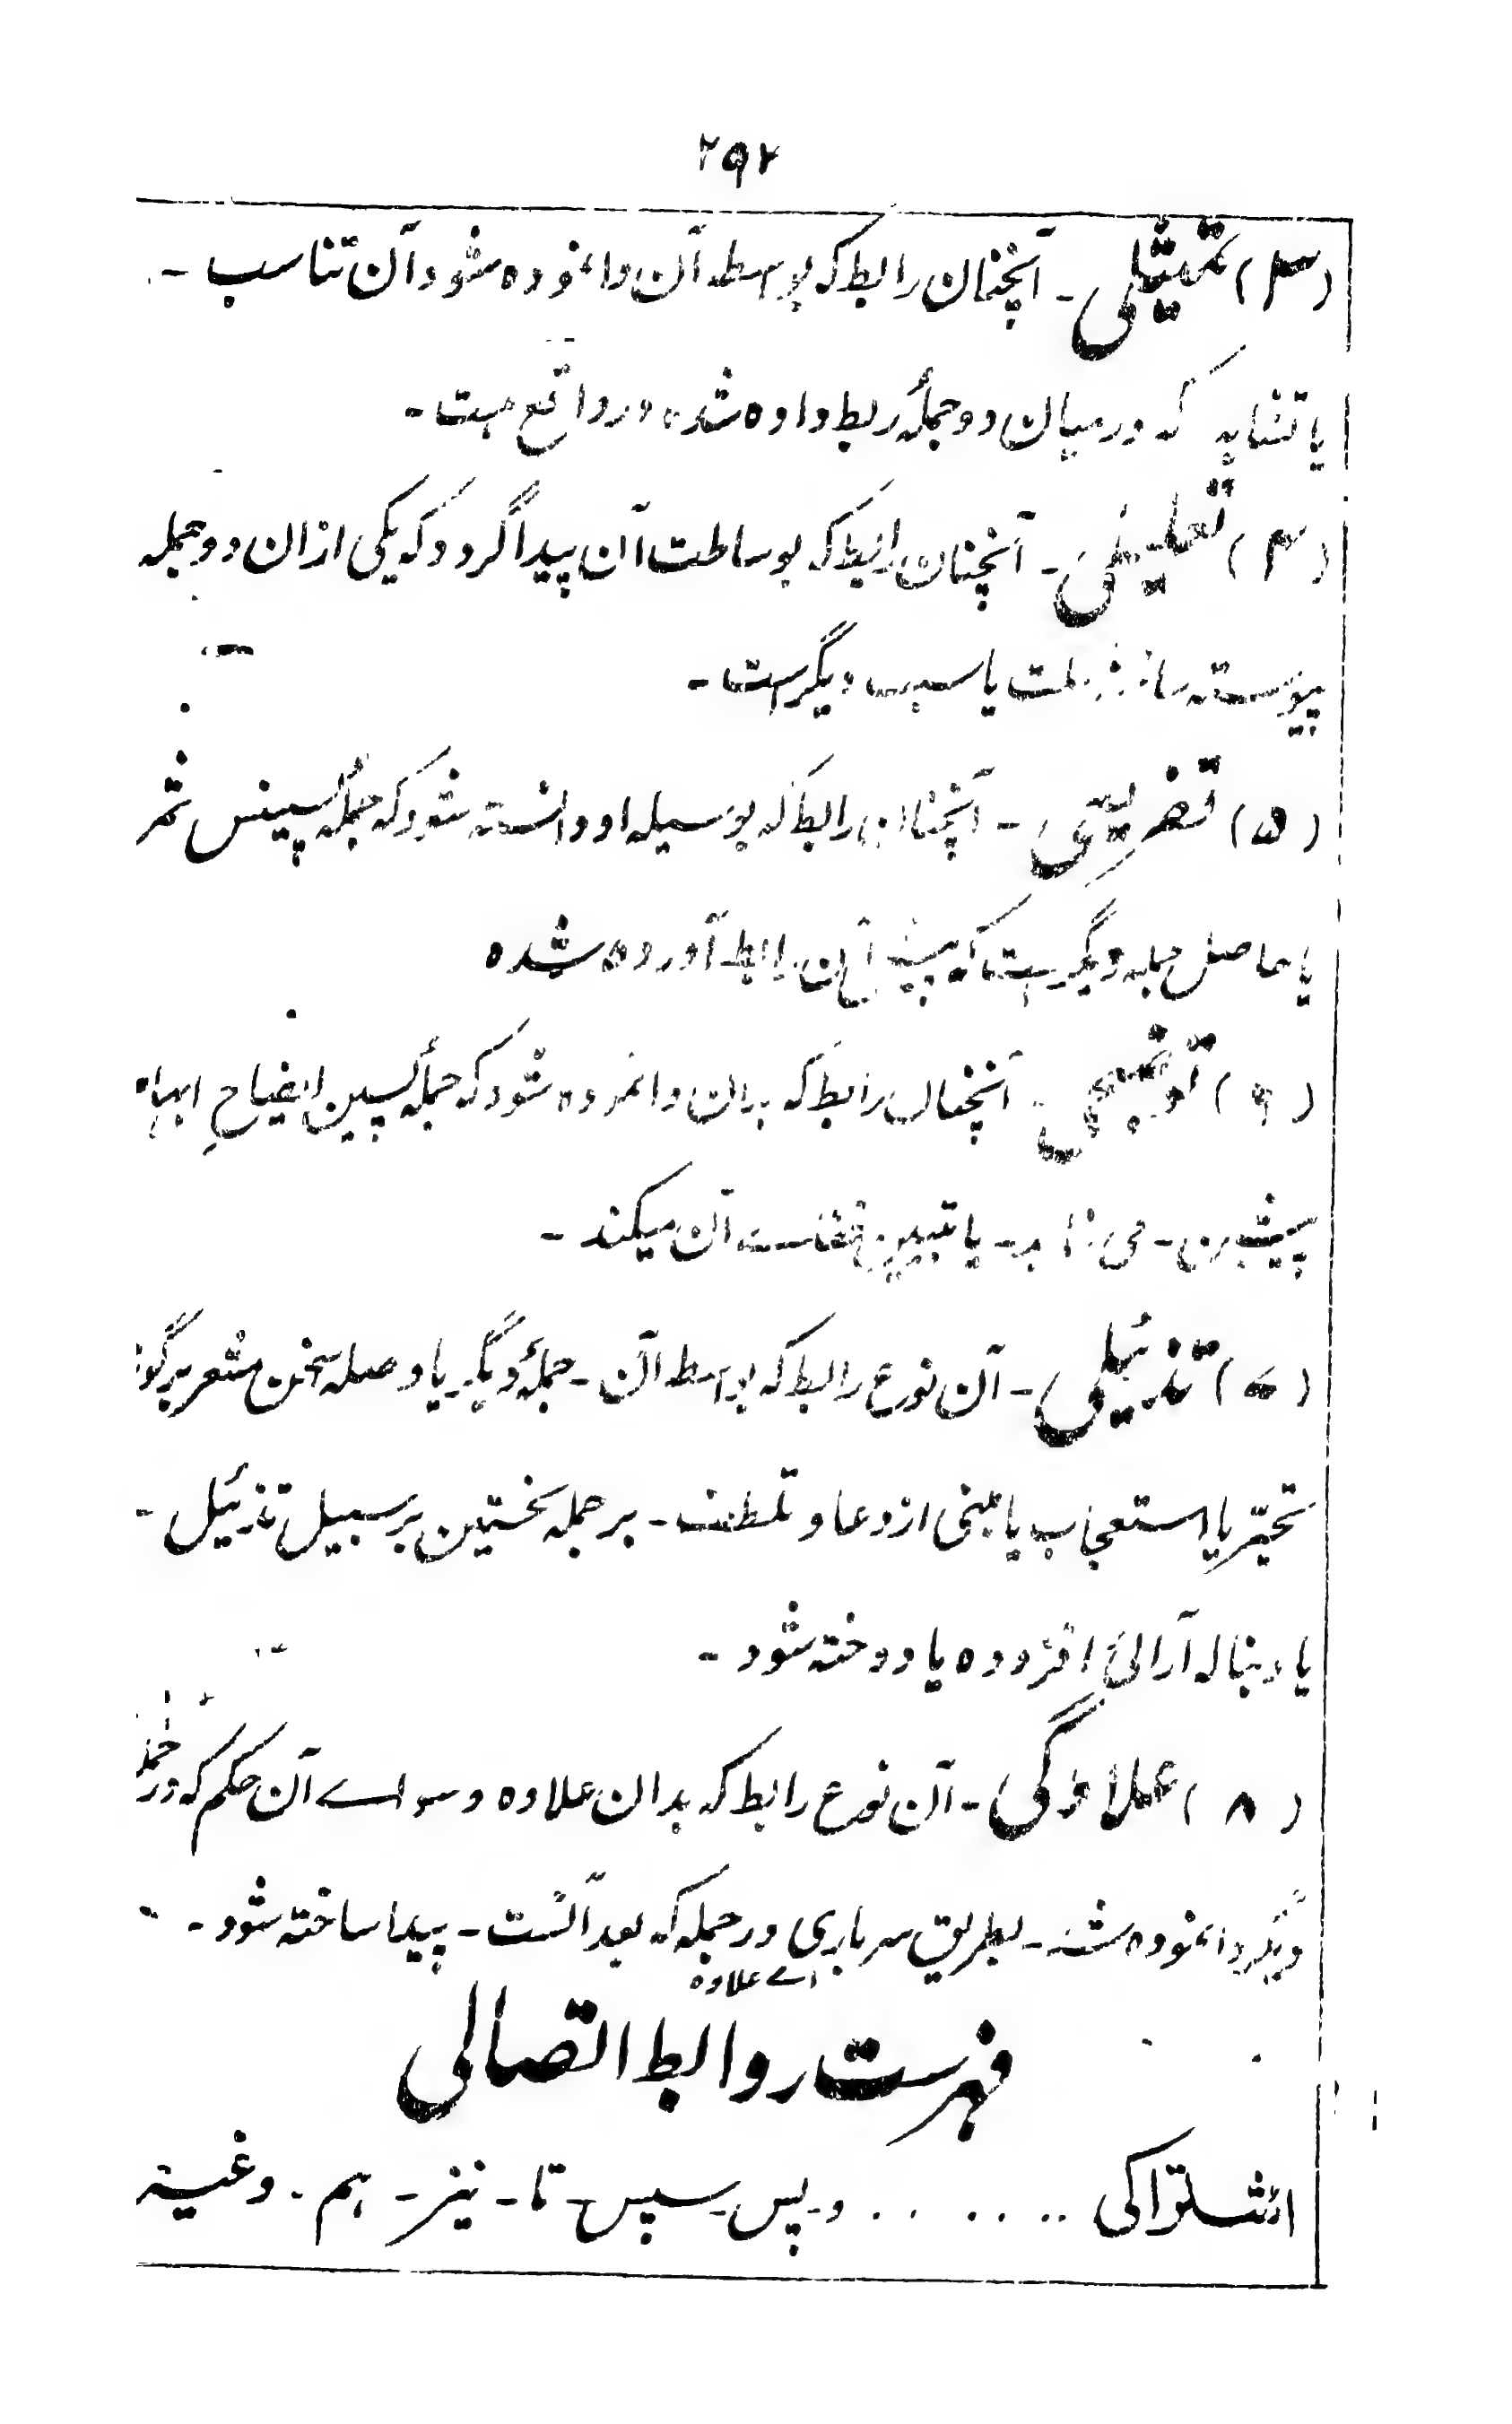 ۲۹۲
(۳) تمثیلی - آنچنان رابط که بواسطه آن وانموده شود آن تناسب -
یا تشابه که درمیان دو جملهٔ ربط داده شده در واقع هست -
(۴) تعلیلی - آنچنان رابط که بوساطت آن پیدا گردد که یکی ازان دو جمله
پیوسته ساخته علت یا سبب دیگر است -
(۵) تفریعی - آنچنان رابط که بوسیله او دانسته شود که جملهٔ پسین ثمر
یا حاصل جمله دیگر است که پیش آن رابط آورده شده
(۶) توضیحی - آنچنان رابط که بدان وانموده شود که جملهٔ پسین ایضاحِ ابهام
پیشین - می نماید - یا تبیین آن میکند -
(۷) تذئیلی - آن نوع رابط که بواسطه آن - جملهٔ دیگر یا وصله سخن مشعر بر گونه
تحیّر یا استعجاب یا مبنی از دعا و تلطف - بر جمله نخستین بر سبیل تذئیل -
یا دنباله آرائی افزوده یا دوخته شود -
(۸) علاوگی - آن نوع رابط که بدان علاوه و سواے آن حکم که در جمله
دیگر وانموده شده - بطریق سرباری در جمله که بعد آنست - پیدا ساخته شود -
اے علاوه
فهرست روابط اتصالی
اشتراکی ...... و - پس - سپس - تا - نیز - هم - وغیره